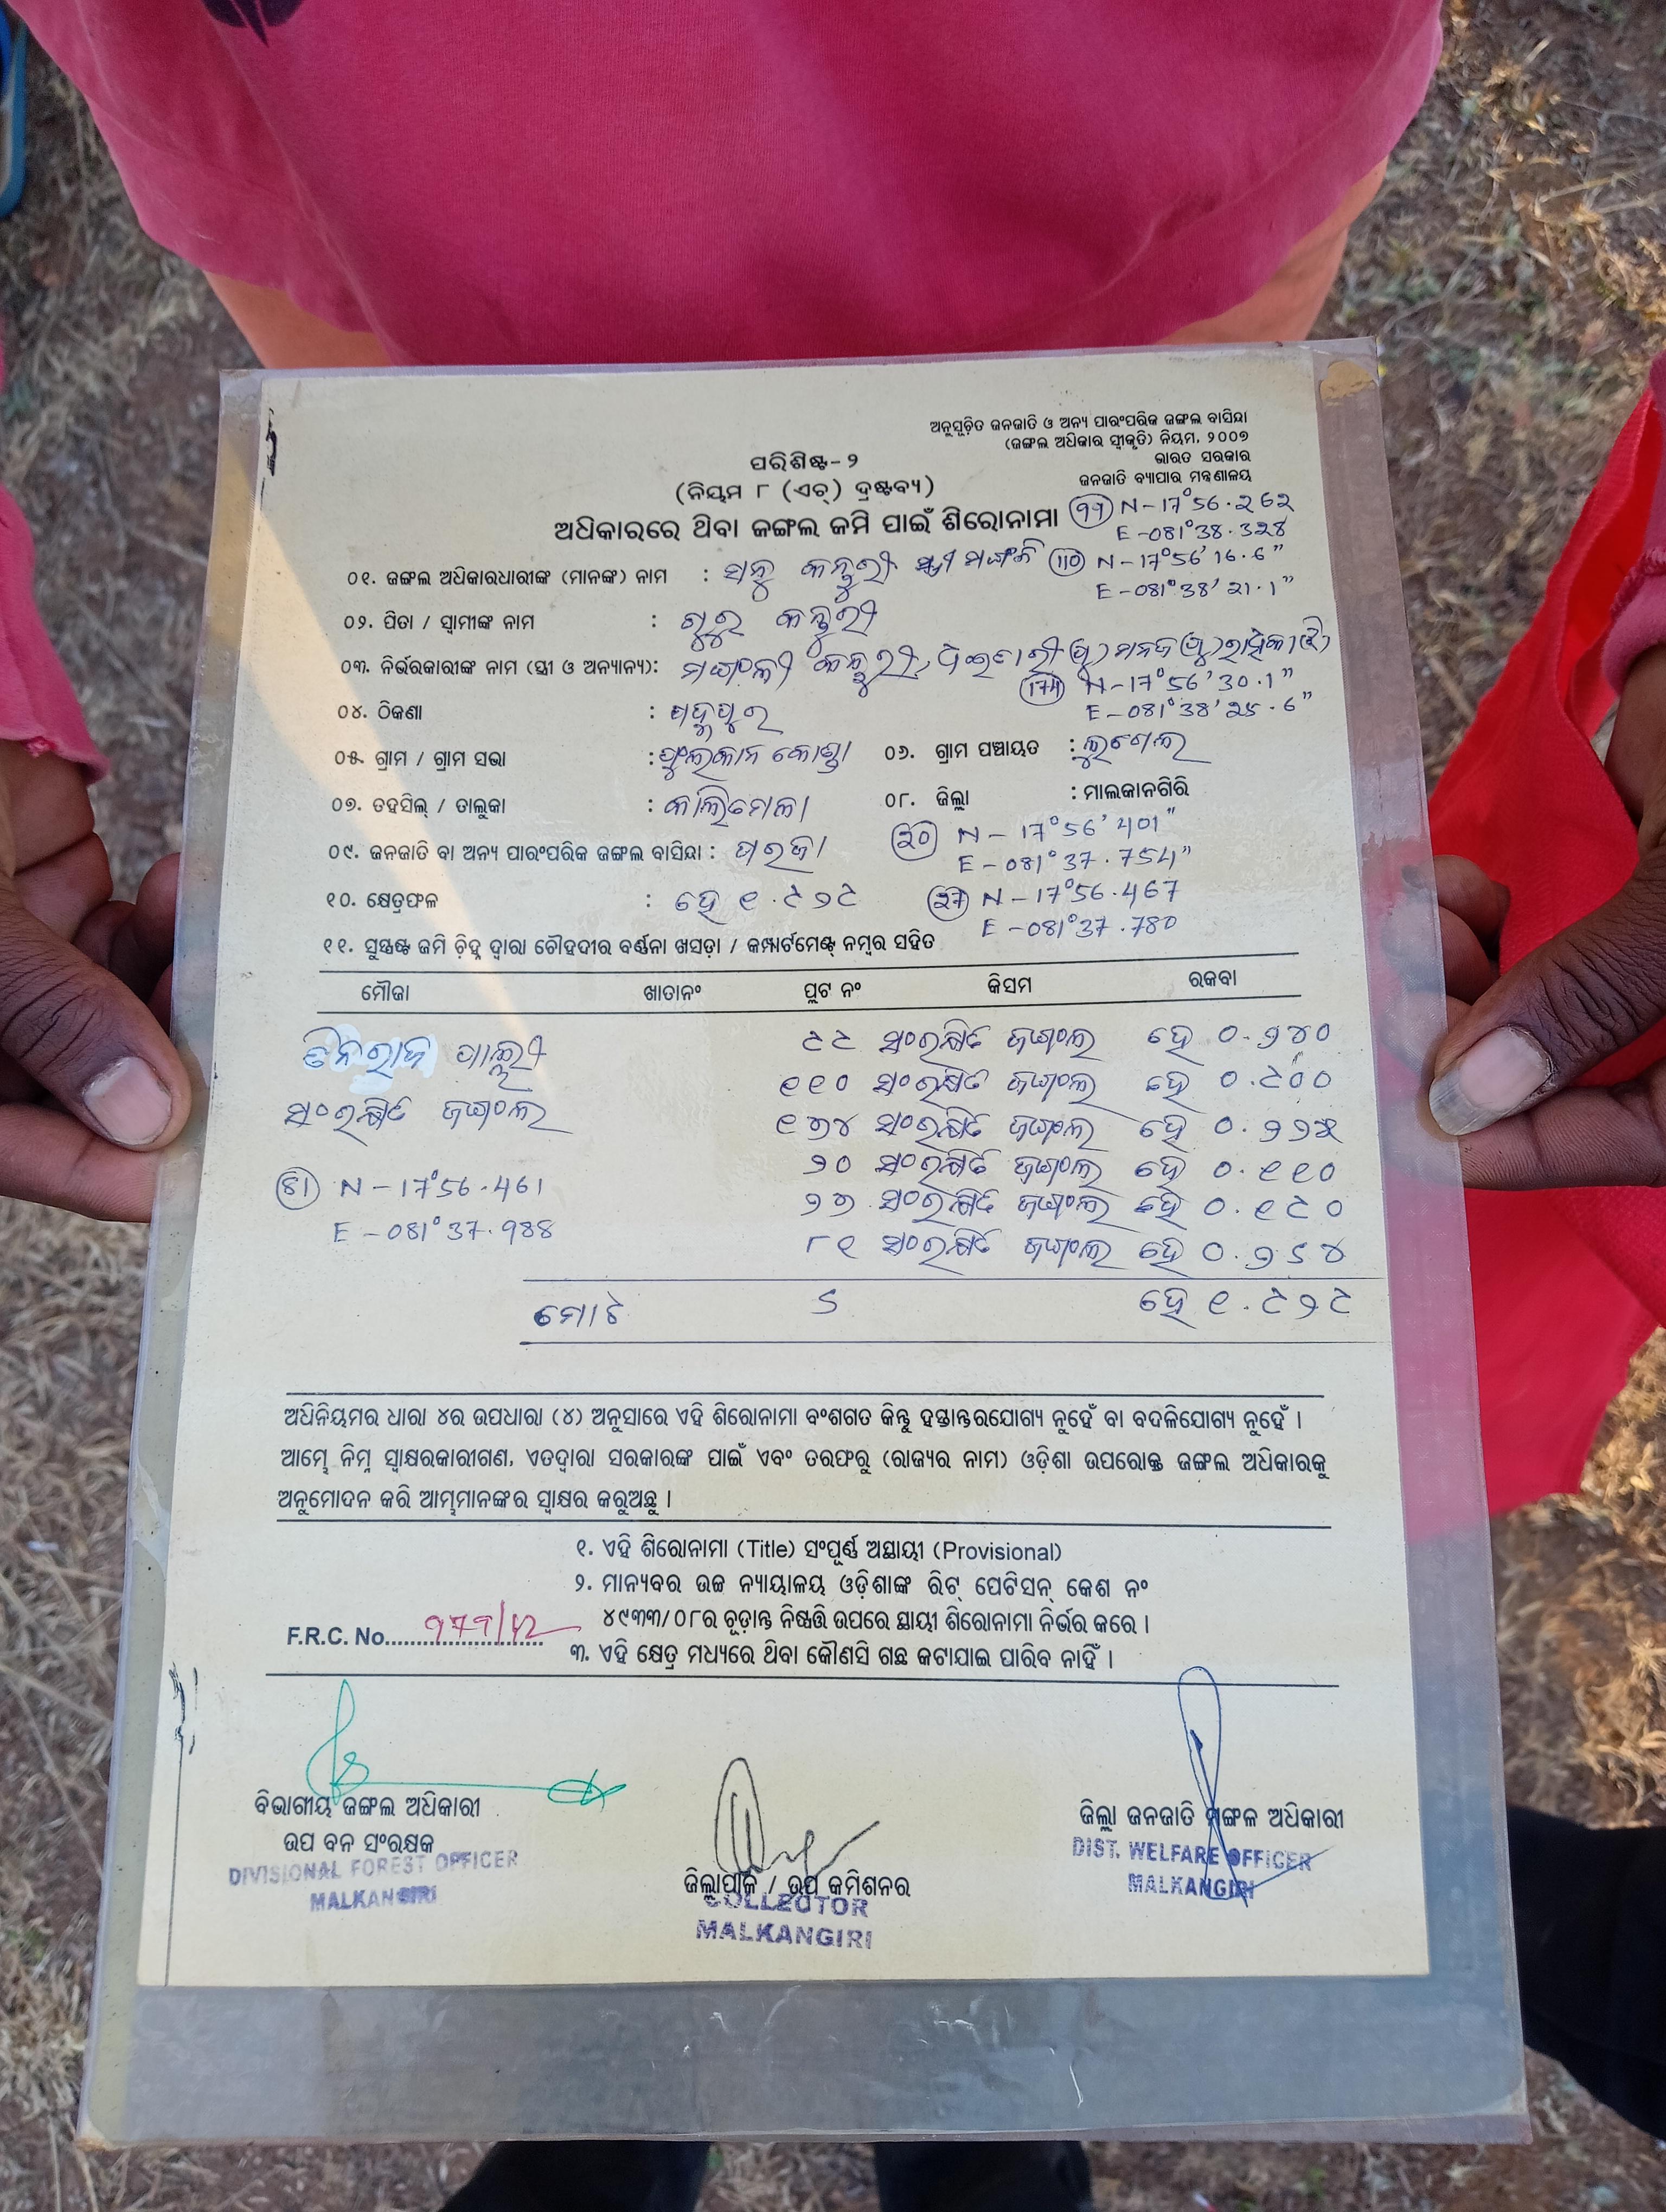 ଅନୁସୂଚିତ ଜନଜାତି ଓ ଅନ୍ୟ ପାରଂପରିକ ଜଙ୍ଗଲ ବାସିନ୍ଦା
(ଜଙ୍ଗଲ ଅଧିକାର ସ୍ୱୀକୃତି) ନିୟମ, ୨୦୦୭
ଭାରତ ସରକାର
ଜନଜାତି ବ୍ୟାପାର ମନ୍ତ୍ରଣାଳୟ
ପରିଶିଷ୍ଟ-୨
(ନିୟମ ୮ (ଏଚ୍) ଦ୍ରଷ୍ଟବ୍ୟ)
ଅଧିକାରରେ ଥିବା ଜଙ୍ଗଲ ଜମି ପାଇଁ ଶିରୋନାମା
N-17°56.262
E-081°38.328
୦୧. ଜଙ୍ଗଲ ଅଧିକାରଧାରୀଙ୍କ (ମାନଙ୍କ) ନାମ :
110 N-17°56'16.6"
E-081°38'21.1"
୦୨. ପିତା / ସ୍ୱାମୀଙ୍କ ନାମ : ଗୁରୁ
୦୩. ନିର୍ଭରକାରୀଙ୍କ ନାମ (ସ୍ତ୍ରୀ ଓ ଅନ୍ୟାନ୍ୟ):
174 N-17°56'30.1"
E-081°38'25.6"
୦୪. ଠିକଣା :
୦୫. ଗ୍ରାମ / ଗ୍ରାମ ସଭା : ୦୬. ଗ୍ରାମ ପଞ୍ଚାୟତ :
୦୭. ତହସିଲ୍ / ତାଲୁକା : କାଲିମେଳା ୦୮. ଜିଲ୍ଲା : ମାଲକାନଗିରି
20 N-17°56'401"
E-081°37.754"
୦୯. ଜନଜାତି ବା ଅନ୍ୟ ପାରଂପରିକ ଜଙ୍ଗଲ ବାସିନ୍ଦା : ପରଜା
୧୦. କ୍ଷେତ୍ରଫଳ : ହେ ୧.୯୨୯
27 N-17°56.467
E-081°37.780
୧୧. ସୁସ୍ପଷ୍ଟ ଜମି ଚିହ୍ନ ଦ୍ୱାରା ଚୌହଦୀର ବର୍ଣ୍ଣନା ଖସଡ଼ା / କମ୍ପାର୍ଟମେଣ୍ଟ୍ ନମ୍ବର ସହିତ
ମୌଜା ଖାତାନଂ ପ୍ଲଟ ନଂ କିସମ ରକବା
୯୯ ସଂରକ୍ଷିତ ଜଙ୍ଗଲ ହେ ୦.୨୪୦
୧୧୦ ସଂରକ୍ଷିତ ଜଙ୍ଗଲ ହେ ୦.୯୦୦
ସଂରକ୍ଷିତ ଜଙ୍ଗଲ
୧୭୪ ସଂରକ୍ଷିତ ଜଙ୍ଗଲ ହେ ୦.୨୨୫
୨୦ ସଂରକ୍ଷିତ ଜଙ୍ଗଲ ହେ ୦.୧୧୦
81 N-17°56.461
୨୭ ସଂରକ୍ଷିତ ଜଙ୍ଗଲ ହେ ୦.୧୯୦
E-081°37.988
୮୧ ସଂରକ୍ଷିତ ଜଙ୍ଗଲ ହେ ୦.୨୬୪
ମୋଟ ୬ ହେ ୧.୯୨୯
ଅଧିନିୟମର ଧାରା ୪ର ଉପଧାରା (୪) ଅନୁସାରେ ଏହି ଶିରୋନାମା ବଂଶଗତ କିନ୍ତୁ ହସ୍ତାନ୍ତରଯୋଗ୍ୟ ନୁହେଁ ବା ବଦଳିଯୋଗ୍ୟ ନୁହେଁ ।
ଆମ୍ଭେ ନିମ୍ନ ସ୍ୱାକ୍ଷରକାରୀଗଣ, ଏତଦ୍ୱାରା ସରକାରଙ୍କ ପାଇଁ ଏବଂ ତରଫରୁ (ରାଜ୍ୟର ନାମ) ଓଡ଼ିଶା ଉପରୋକ୍ତ ଜଙ୍ଗଲ ଅଧିକାରକୁ
ଅନୁମୋଦନ କରି ଆମ୍ଭମାନଙ୍କର ସ୍ୱାକ୍ଷର କରୁଅଛୁ ।
୧. ଏହି ଶିରୋନାମା (Title) ସଂପୂର୍ଣ୍ଣ ଅସ୍ଥାୟୀ (Provisional)
୨. ମାନ୍ୟବର ଉଚ୍ଚ ନ୍ୟାୟାଳୟ ଓଡ଼ିଶାଙ୍କ ରିଟ୍ ପେଟିସନ୍ କେଶ ନଂ
୪୯୩୩/୦୮ର ଚୂଡ଼ାନ୍ତ ନିଷ୍ପତ୍ତି ଉପରେ ସ୍ଥାୟୀ ଶିରୋନାମା ନିର୍ଭର କରେ ।
F.R.C. No.
୩. ଏହି କ୍ଷେତ୍ର ମଧ୍ୟରେ ଥିବା କୌଣସି ଗଛ କଟାଯାଇ ପାରିବ ନାହିଁ ।
ବିଭାଗୀୟ ଜଙ୍ଗଲ ଅଧିକାରୀ
ଉପ ବନ ସଂରକ୍ଷକ
DIVISIONAL FOREST OFFICER
MALKANGIRI
ଜିଲ୍ଲାପାଳ / ଉପ କମିଶନର
COLLECTOR
MALKANGIRI
ଜିଲ୍ଲା ଜନଜାତି ମଙ୍ଗଳ ଅଧିକାରୀ
DIST. WELFARE OFFICER
MALKANGIRI